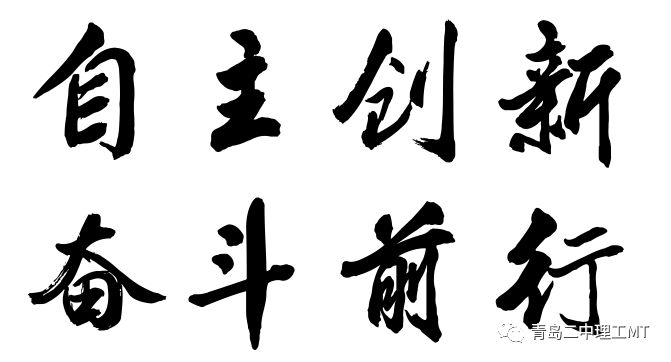 自主创新
奋斗前行
青岛二中理工MT